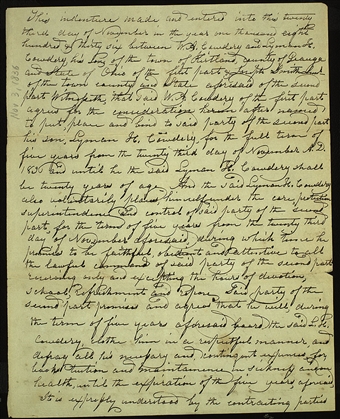 This indenture made and entered into this twenty
third day of November in the year one thousand eight
hundred & thirty six between W. H. Cowdery and Lyman H.
Cowdery, his son of the town of Kirtland, county of Geauga
and State of Ohio of the first part & Joseph Smith
of the town county and State aforesaid of the second
part Witnesseth, that said W. H. Cowdery of the first part
agrees for the consideration herein after named
to put, place and bind to said party of the second part
his son, Lyman H. Cowdery, for the full term of
five years from the twenty third day of November A.D.
1836 and until he the said Lyman H. Cowdery shall
be twenty years of age. And the said Lyman H. Cowdery
also voluntarily places himself under the care, protection
superintendence and control of said party of the second
part, for the term of five years from the twenty third
day of November aforesaid, during which time he
promises to be faithful obedient and attentive to all
the lawful commands of said party of the second part
receiving only and excepting the hours of devotion,
school, refreshment and repose. Said party of the
second part promises and agrees that he will, during
the term of five years aforesaid board, the said L. H.
Cowdery, clothe him in a respectful manner, and
defray all his necessary and contingent expenses, for
his tuition and maintainance in sickness and in
health, until the expiration of the five years aforesaid.
It is expressly understood by the contracting parties